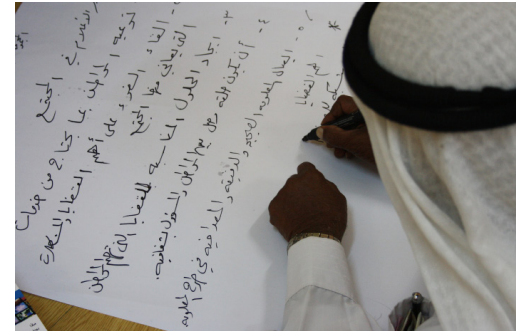 الإعلام في المجتمع
توعية المواطن بما يحتاج من خدمات
- القاء الضوء على أهم القضايا والمشكلات
التي يعاني منها المجتمع
٣- ايجاد الحلول المناسبة للقضايا التي تهم المواطن
٤- أن يكون حلقة وصل بين المواطن والمسؤول بشفافية.
٥- ايصال المعلومة الصحيحة والدقيقة والمصداقية في طرح المعلومة
* أهم القضايا